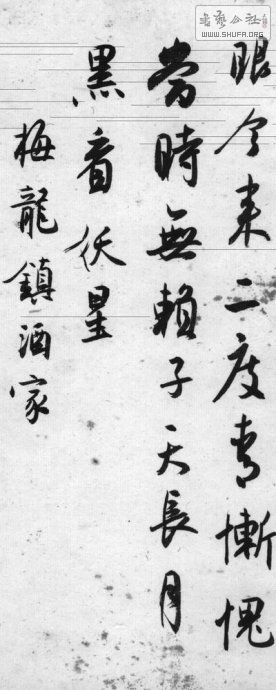 書藝公社
WWW.SHUFA.ORG
眼今来二度青慚愧
時無賴子天長月
黑看妖星
梅龍鎮酒家